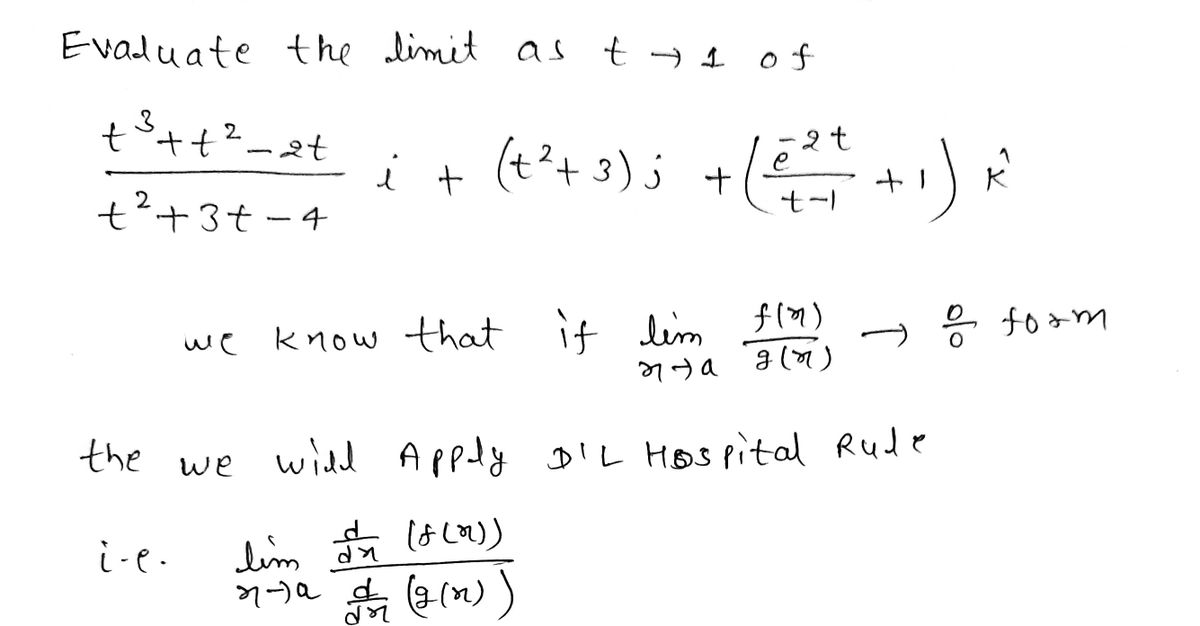 Evaluate the limit as t → 1 of
(t³+t²-2t)/(t²+3t-4) i + (t²+3) j + (e⁻²ᵗ/(t-1) + 1) k̂
we know that if lim x→a f(x)/g(x) → 0/0 form
the we will Apply D'L Hospital Rule
i-e. lim x→a d/dx (f(x)) / d/dx (g(x))